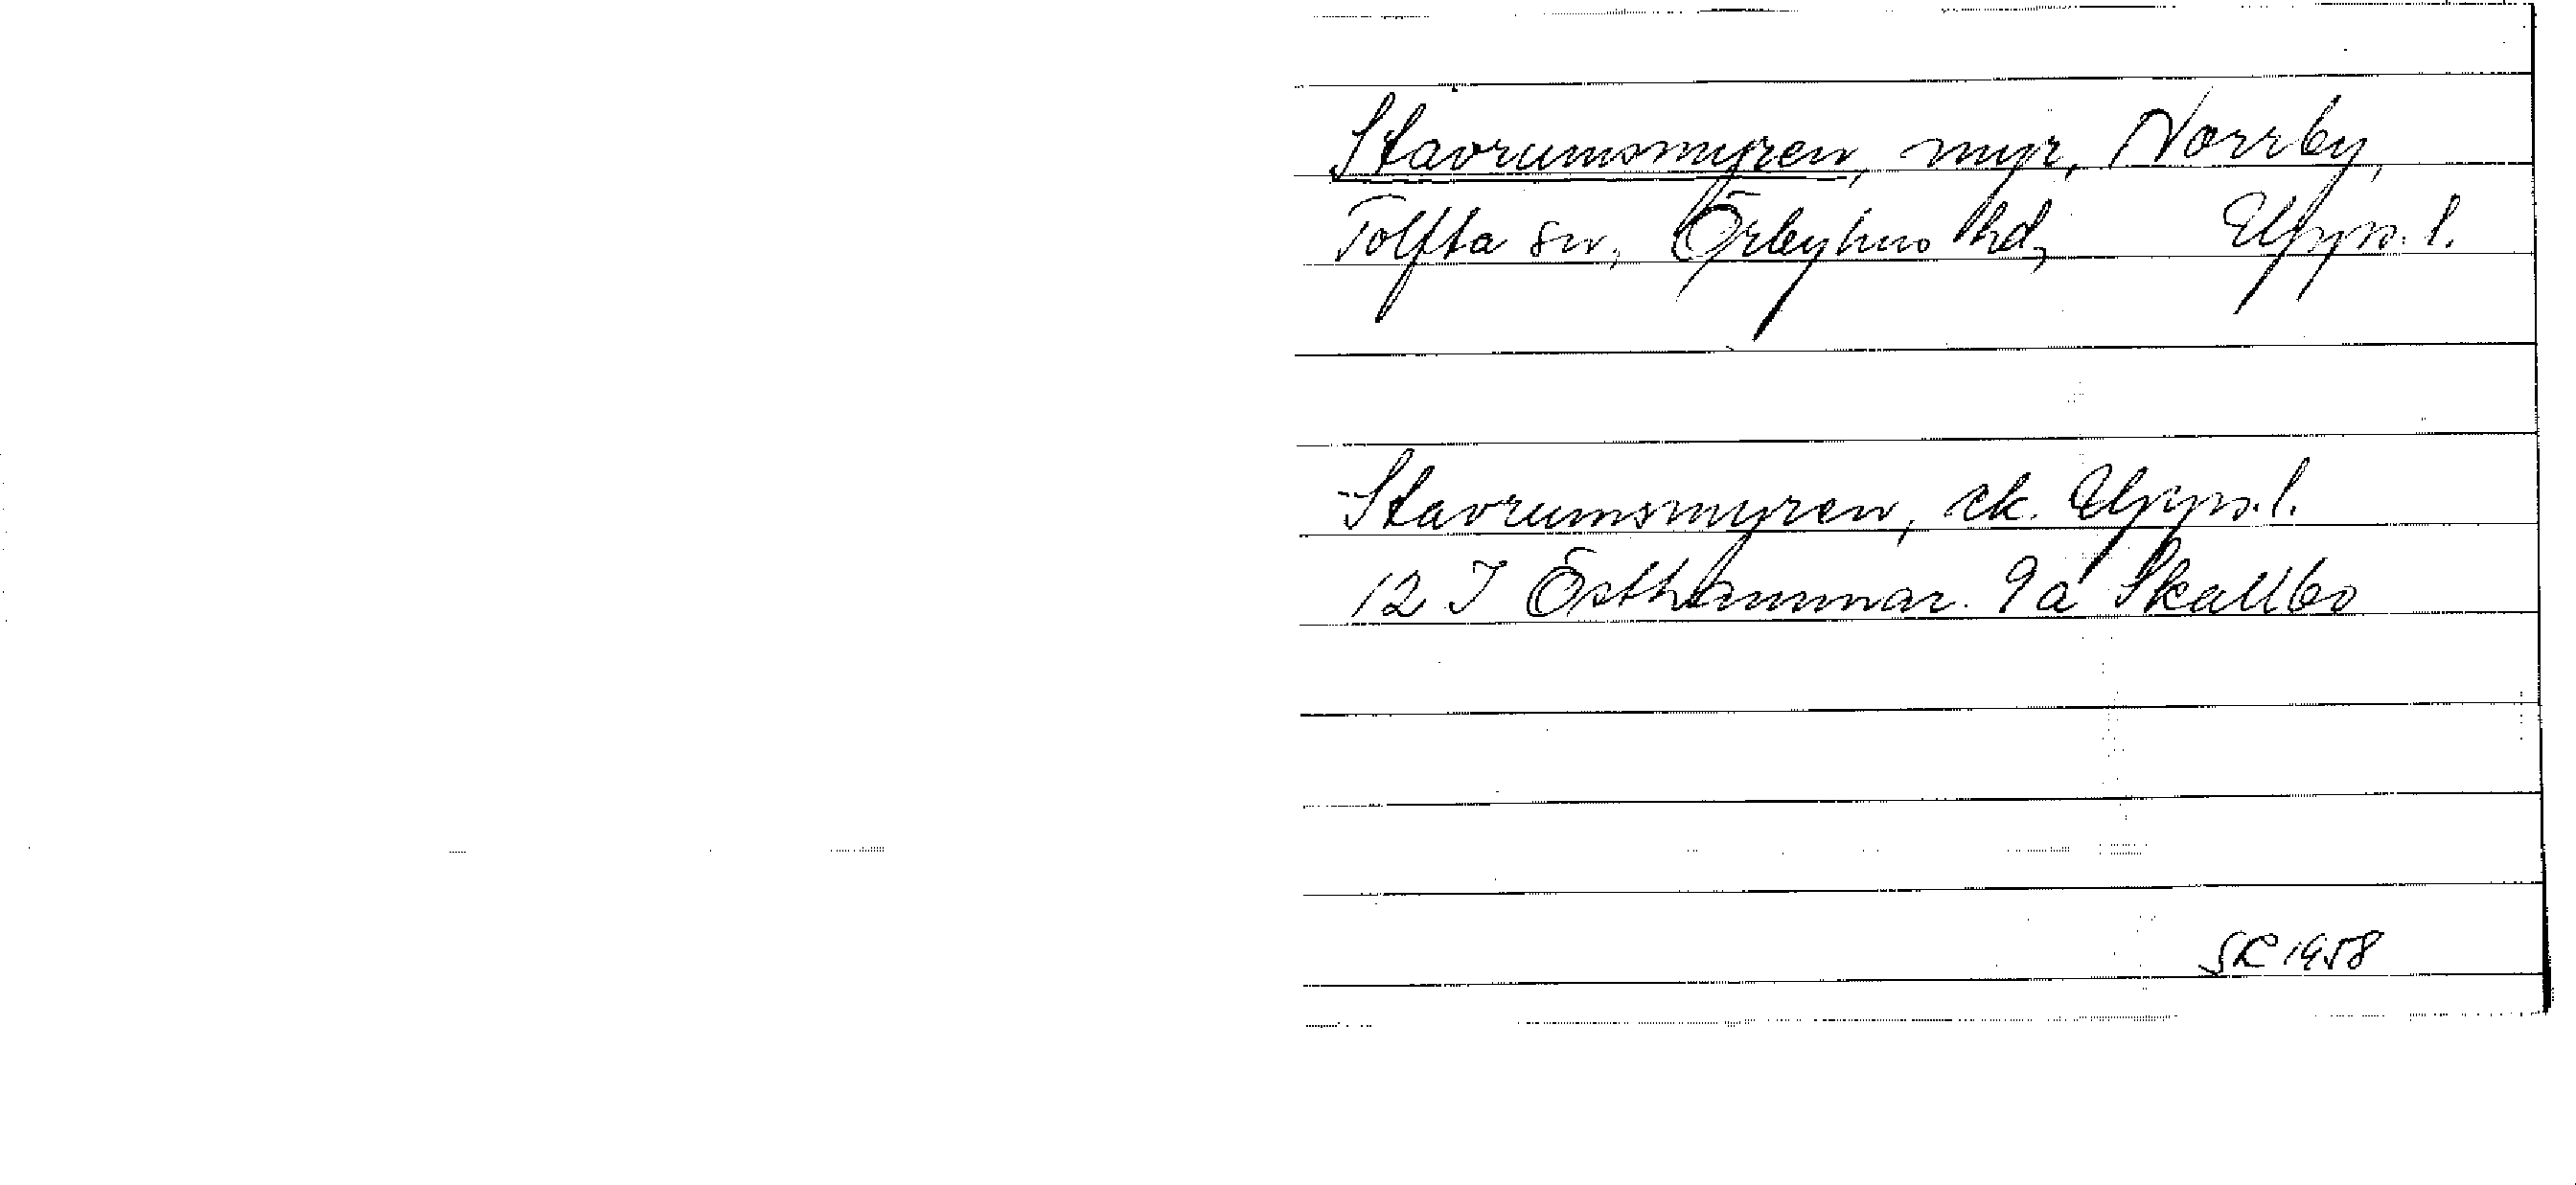 Stavrumsmyren, myr, Norrby,
Tolfta sn, Örbyhus hd, Upps. l.
Stavrumsmyren, ek. Upps. l.
12 I Östhammar. 9a Skallbo
SR 1958